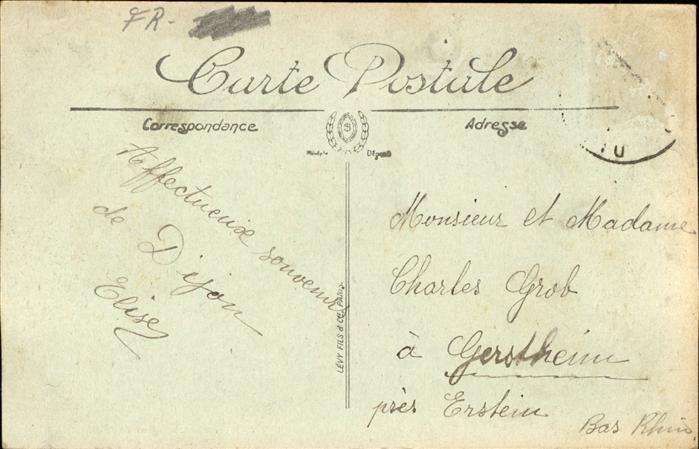 FR-
Carte Postale
Correspondance
Adresse
Modèle Déposé
Affectueux souvenir
de Dijon
Elise
LEVY FILS & CO, PARIS
U
Monsieur et Madame
Charles Grob
à Gerstheim
près Erstein
Bas Rhin